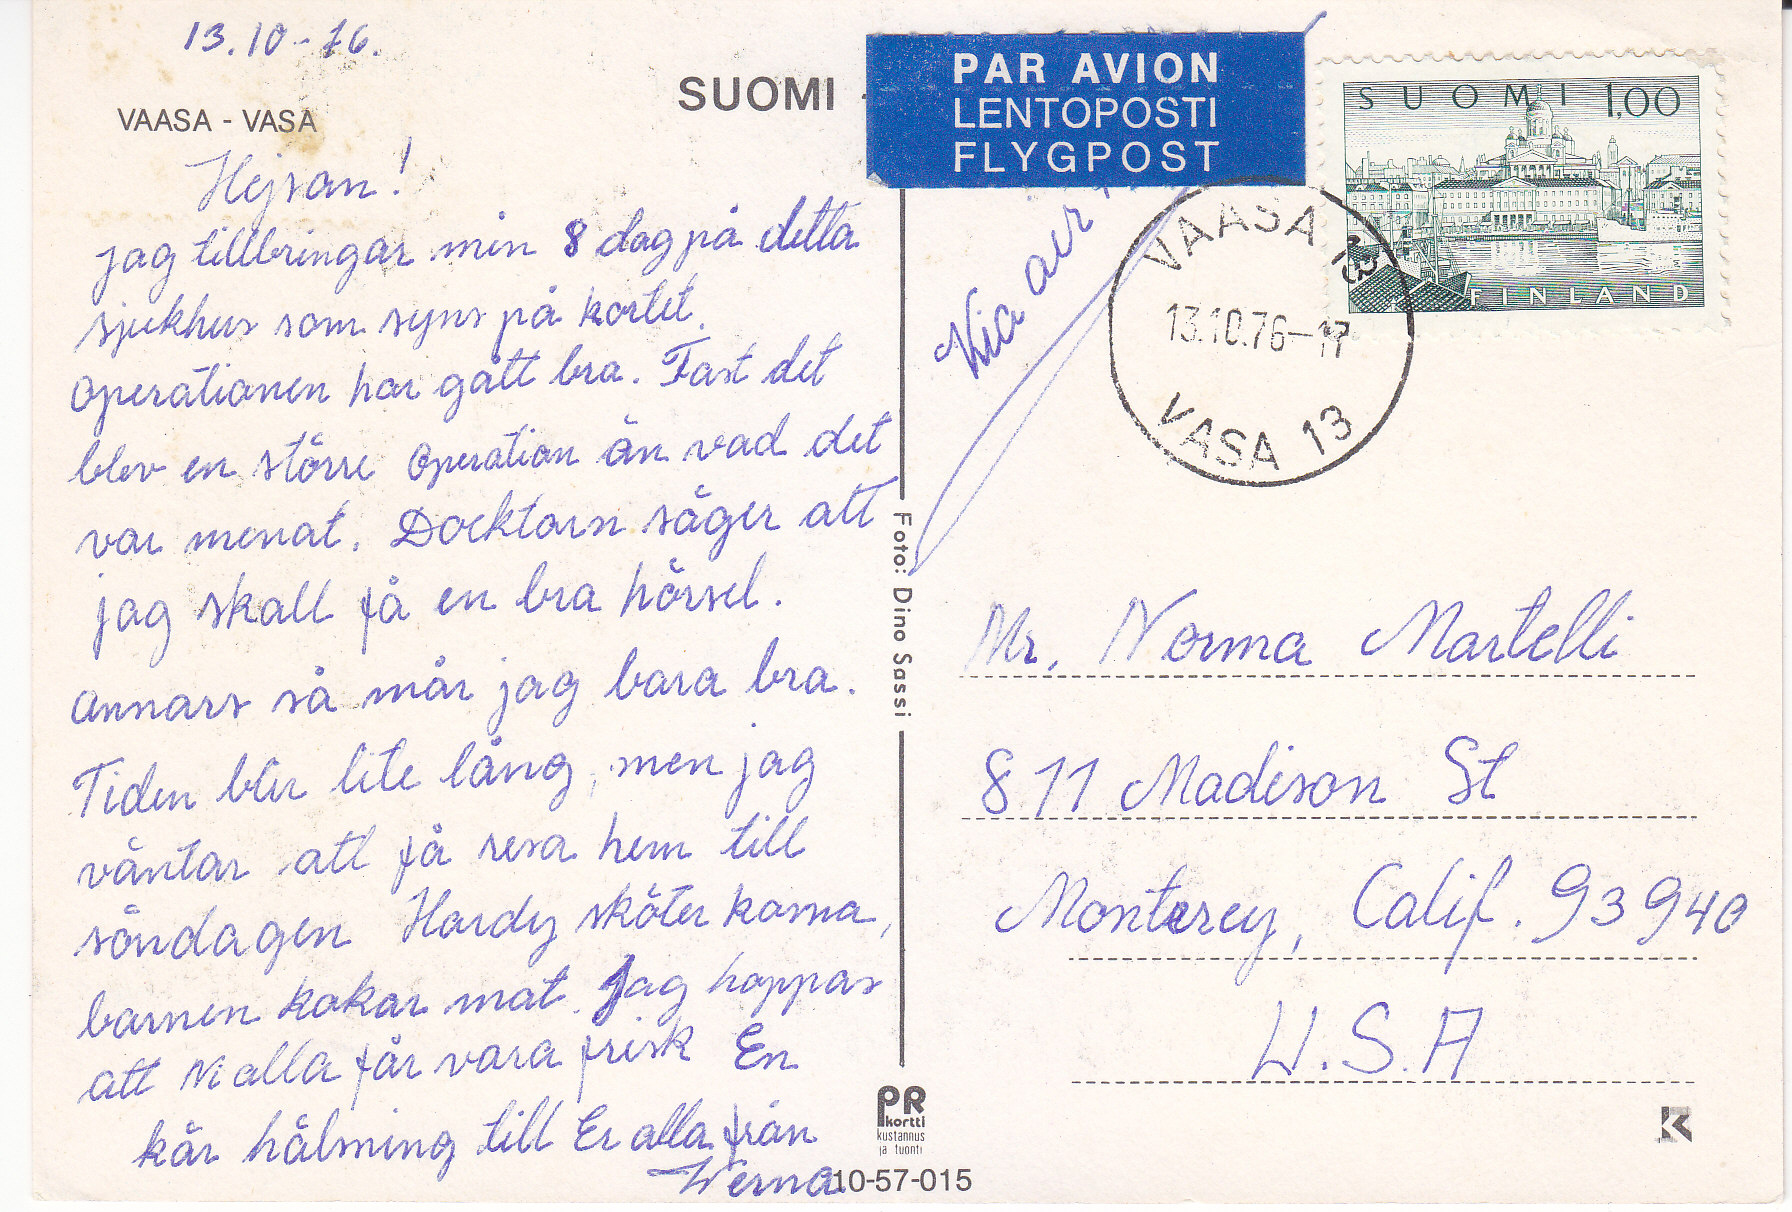 13.10-76.
VAASA - VASA
Hejsan!
jag tillbringar min 8 dag på detta
sjukhus som syns på kortet.
Operationen har gått bra. Fast det
blev en större operation än vad det
var menat. Docktorn säger att
jag skall få en bra hörsel.
Annars så mår jag bara bra.
Tiden blir lite lång, men jag
väntar att få resa hem till
söndagen Hardy sköter korna,
barnen kokar mat. Jag hoppas
att Ni alla får vara frisk En
kär hälsning till Er alla från
Werna
SUOMI
PAR AVION
LENTOPOSTI
FLYGPOST
SUOMI 1,00
FINLAND
VAASA 13
13.10.76-17
VASA 13
Via air
Foto: Dino Sassi
Mr. Norma Martelli
811 Madison St
Monterey, Calif. 93940
U.S.A
PR
kortti
kustannus
ja tuonti
10-57-015
K